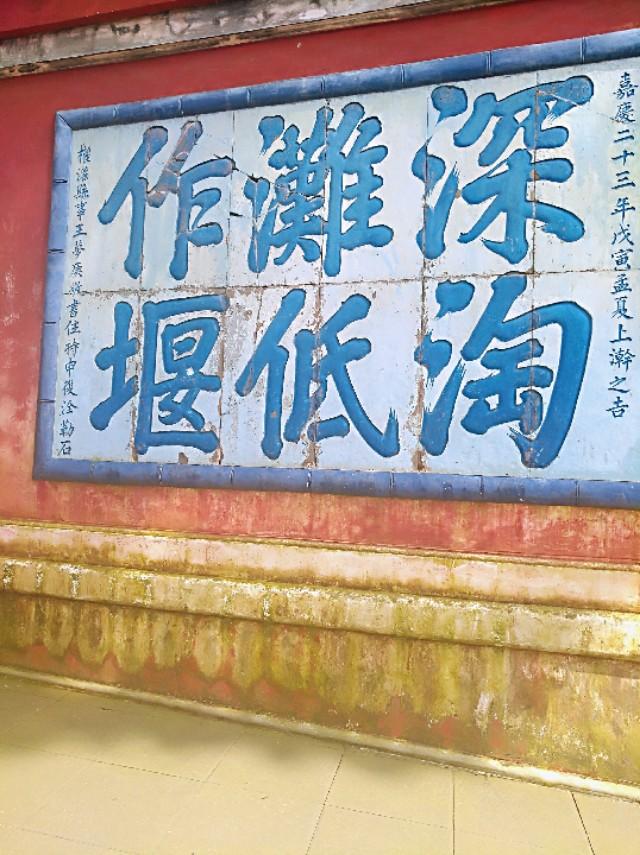 嘉慶二十三年戊寅孟夏上澣之吉
深淘
灘低
作堰
權灌縣事王夢庚書住持申復勒石